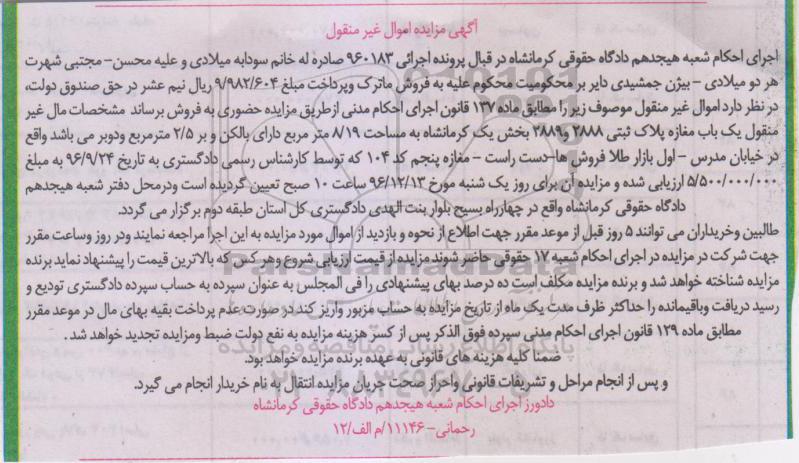 آگهی مزایده اموال غیر منقول
اجرای احکام شعبه هیجدهم دادگاه حقوقی کرمانشاه در قبال پرونده اجرائی ۹۶۰۱۸۳ صادره له خانم سودابه میلادی و علیه محسن- مجتبی شهرت
هر دو میلادی - بیژن جمشیدی دایر بر محکومیت محکوم علیه به فروش ماترک وپرداخت مبلغ ۹/۹۸۲/۶۰۴ ریال نیم عشر در حق صندوق دولت،
در نظر دارد اموال غیر منقول موصوف زیر را مطابق ماده ۱۳۷ قانون اجرای احکام مدنی ازطریق مزایده حضوری به فروش برساند مشخصات مال غیر
منقول یک باب مغازه پلاک ثبتی ۲۸۸۸ و۲۸۸۹ بخش یک کرمانشاه به مساحت ۸/۱۹ متر مربع دارای بالکن و بر ۲/۵ مترمربع ودوبر می باشد واقع
در خیابان مدرس - اول بازار طلا فروش ها-دست راست - مغازه پنجم کد ۱۰۴ که توسط کارشناس رسمی دادگستری به تاریخ ۹۶/۹/۲۴ به مبلغ
۵/۵۰۰/۰۰۰/۰۰۰ ارزیابی شده و مزایده آن برای روز یک شنبه مورخ ۹۶/۱۲/۱۳ ساعت ۱۰ صبح تعیین گردیده است ودرمحل دفتر شعبه هیجدهم
دادگاه حقوقی کرمانشاه واقع در چهارراه بسیج بلوار بنت الهدی دادگستری کل استان طبقه دوم برگزار می گردد.
طالبین وخریداران می توانند ۵ روز قبل از موعد مقرر جهت اطلاع از نحوه و بازدید از اموال مورد مزایده به این اجرا مراجعه نمایند ودر روز وساعت مقرر
جهت شرکت در مزایده در اجرای احکام شعبه ۱۷ حقوقی حاضر شوند مزایده از قیمت ارزیابی شروع وهر کس که بالاترین قیمت را پیشنهاد نماید برنده
مزایده شناخته خواهد شد و برنده مزایده مکلف است ده درصد بهای پیشنهادی را فی المجلس به عنوان سپرده به حساب سپرده دادگستری تودیع و
رسید دریافت وباقیمانده را حداکثر ظرف مدت یک ماه از تاریخ مزایده به حساب مزبور واریز کند در صورت عدم پرداخت بقیه بهای مال در موعد مقرر
مطابق ماده ۱۲۹ قانون اجرای احکام مدنی سپرده فوق الذکر پس از کسر هزینه مزایده به نفع دولت ضبط ومزایده تجدید خواهد شد .
ضمنا کلیه هزینه های قانونی به عهده برنده مزایده خواهد بود.
و پس از انجام مراحل و تشریفات قانونی واحراز صحت جریان مزایده انتقال به نام خریدار انجام می گیرد.
دادورز اجرای احکام شعبه هیجدهم دادگاه حقوقی کرمانشاه
رحمانی- ۱۱۱۴۶/م الف/۱۲
ParsNamadData
پایگاه اطلاع رسانی مناقصه و مزایده